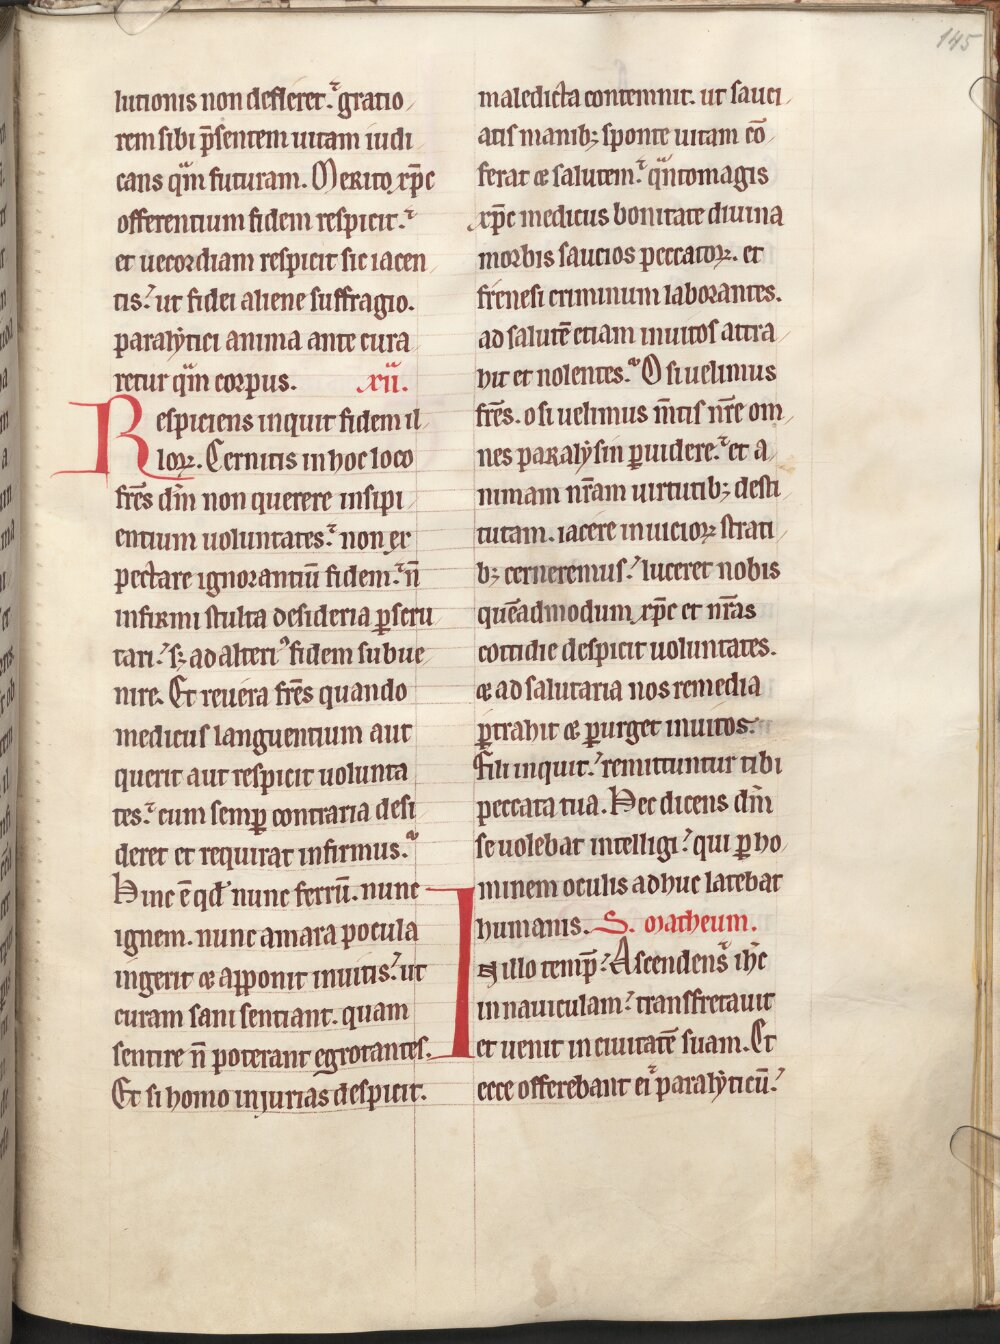 145
lutionis non defleret. gratio
rem sibi p̄sentem uitam iudi
cans qm̄ futuram. Merito xp̄c
offerentium fidem respicit.
et uecordiam respicit sic iacen
tis. ut fidei aliene suffragio.
paralytici anima ante cura
retur qm̄ corpus. xii.
Respiciens inquit fidem il
loꝝ. Cernitis in hoc loco
fr̄es dn̄m non querere insipi
entium uoluntates. non ex
pectare ignorantiū fidem. n̄
infirmi stulta desideria ꝑscru
tari. sꝫ ad alteri᾿ fidem subue
nire. Et reuera fr̄es quando
medicus languentium aut
querit aut respicit uolunta
tes. cum semꝑ contraria desi
deret et requirat infirmus.
Hinc ē qd̄ nunc ferrū. nunc
ignem. nunc amara pocula
ingerit & apponit inuitis. ut
curam sani sentiant. quam
sentire n̄ poterant egrotantes.
Et si homo injurias despicit.
maledicta contemnit. ut sauci
atis manibꝫ sponte uitam cō
ferat & salutem. qͣntomagis
xp̄c medicus bonitate diuina
morbis saucios peccatoꝝ. et
frenesi criminum laborantes.
ad salutē etiam inuitos attra
hit et nolentes. O si uelimus
fr̄es. o si uelimus m̄tis nr̄e om
nes paralysin ꝑuidere. et a
nimam nr̄am uirtutibꝫ desti
tutam. iacere in uicioꝝ strati
bꝫ cerneremus. luceret nobis
quēadmodum xp̄c et nr̄as
cottidie despicit uoluntates.
& ad salutaria nos remedia
ꝑtrahit & ꝑurget inuitos.
Fili inquit. remittuntur tibi
peccata tua. Hec dicens dn̄s
se uolebat intelligi. qui ꝑ ho
minem oculis adhuc latebat
humanis. S. matheum.
In illo temp̄. Ascendens ih̄c
in nauiculam. transfretauit
et uenit in ciuitatē suam. Et
ecce offerebant ei paralyticū.